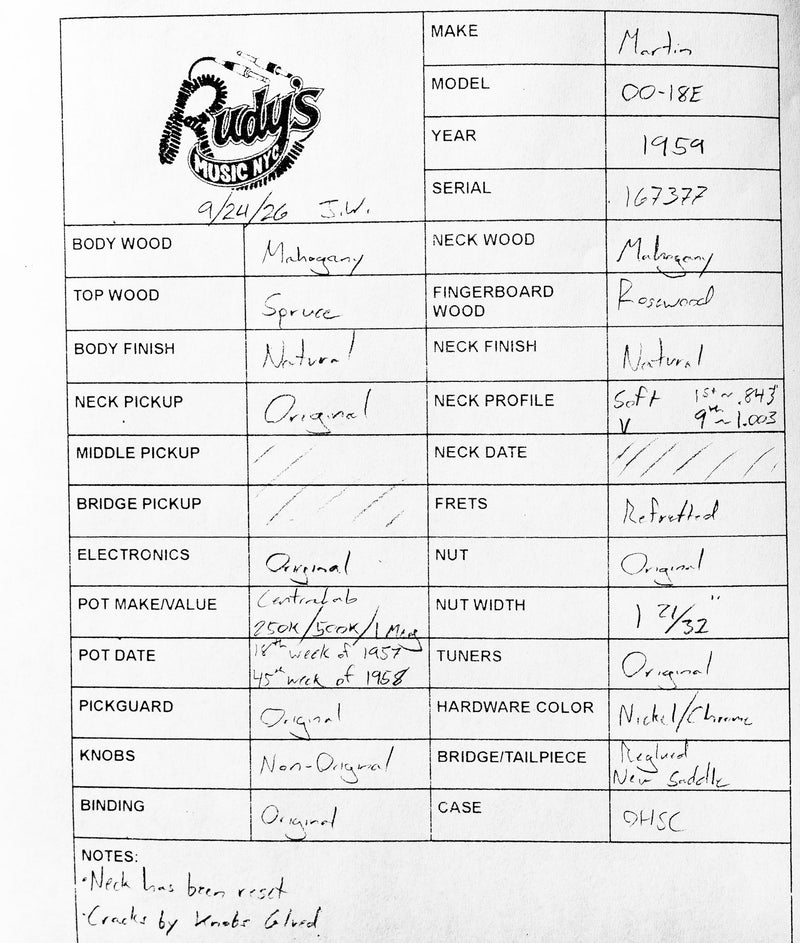 Rudy's
MUSIC NYC
9/24/26 J.W.
MAKE Martin
MODEL 00-18E
YEAR 1959
SERIAL 167377
BODY WOOD Mahogany
NECK WOOD Mahogany
TOP WOOD Spruce
FINGERBOARD WOOD Rosewood
BODY FINISH Natural
NECK FINISH Natural
NECK PICKUP Original
NECK PROFILE Soft V 1st ~ .843" 9th ~ 1.003
MIDDLE PICKUP
NECK DATE
BRIDGE PICKUP
FRETS Refretted
ELECTRONICS Original
NUT Original
POT MAKE/VALUE Centralab 250K/500K/1 Meg
NUT WIDTH 1 21/32"
POT DATE 18th week of 1957 45th week of 1958
TUNERS Original
PICKGUARD Original
HARDWARE COLOR Nickel/Chrome
KNOBS Non-Original
BRIDGE/TAILPIECE Reglued New Saddle
BINDING Original
CASE OHSC
NOTES:
·Neck has been reset
·Cracks by Knobs Glued